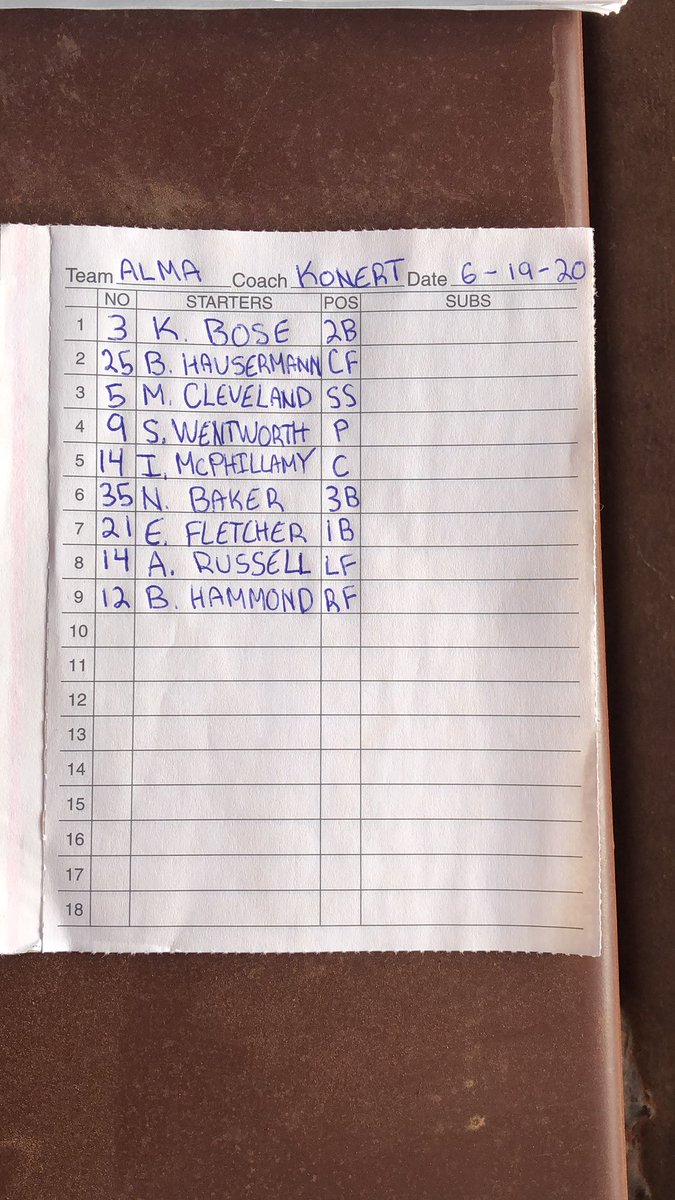 Team ALMA Coach KONERT Date 6-19-20
NO STARTERS POS SUBS
1 3 K. BOSE 2B
2 25 B. HAUSERMANN CF
3 5 M. CLEVELAND SS
4 9 S. WENTWORTH P
5 14 I. MCPHILLAMY C
6 35 N. BAKER 3B
7 21 E. FLETCHER 1B
8 14 A. RUSSELL LF
9 12 B. HAMMOND RF
10
11
12
13
14
15
16
17
18